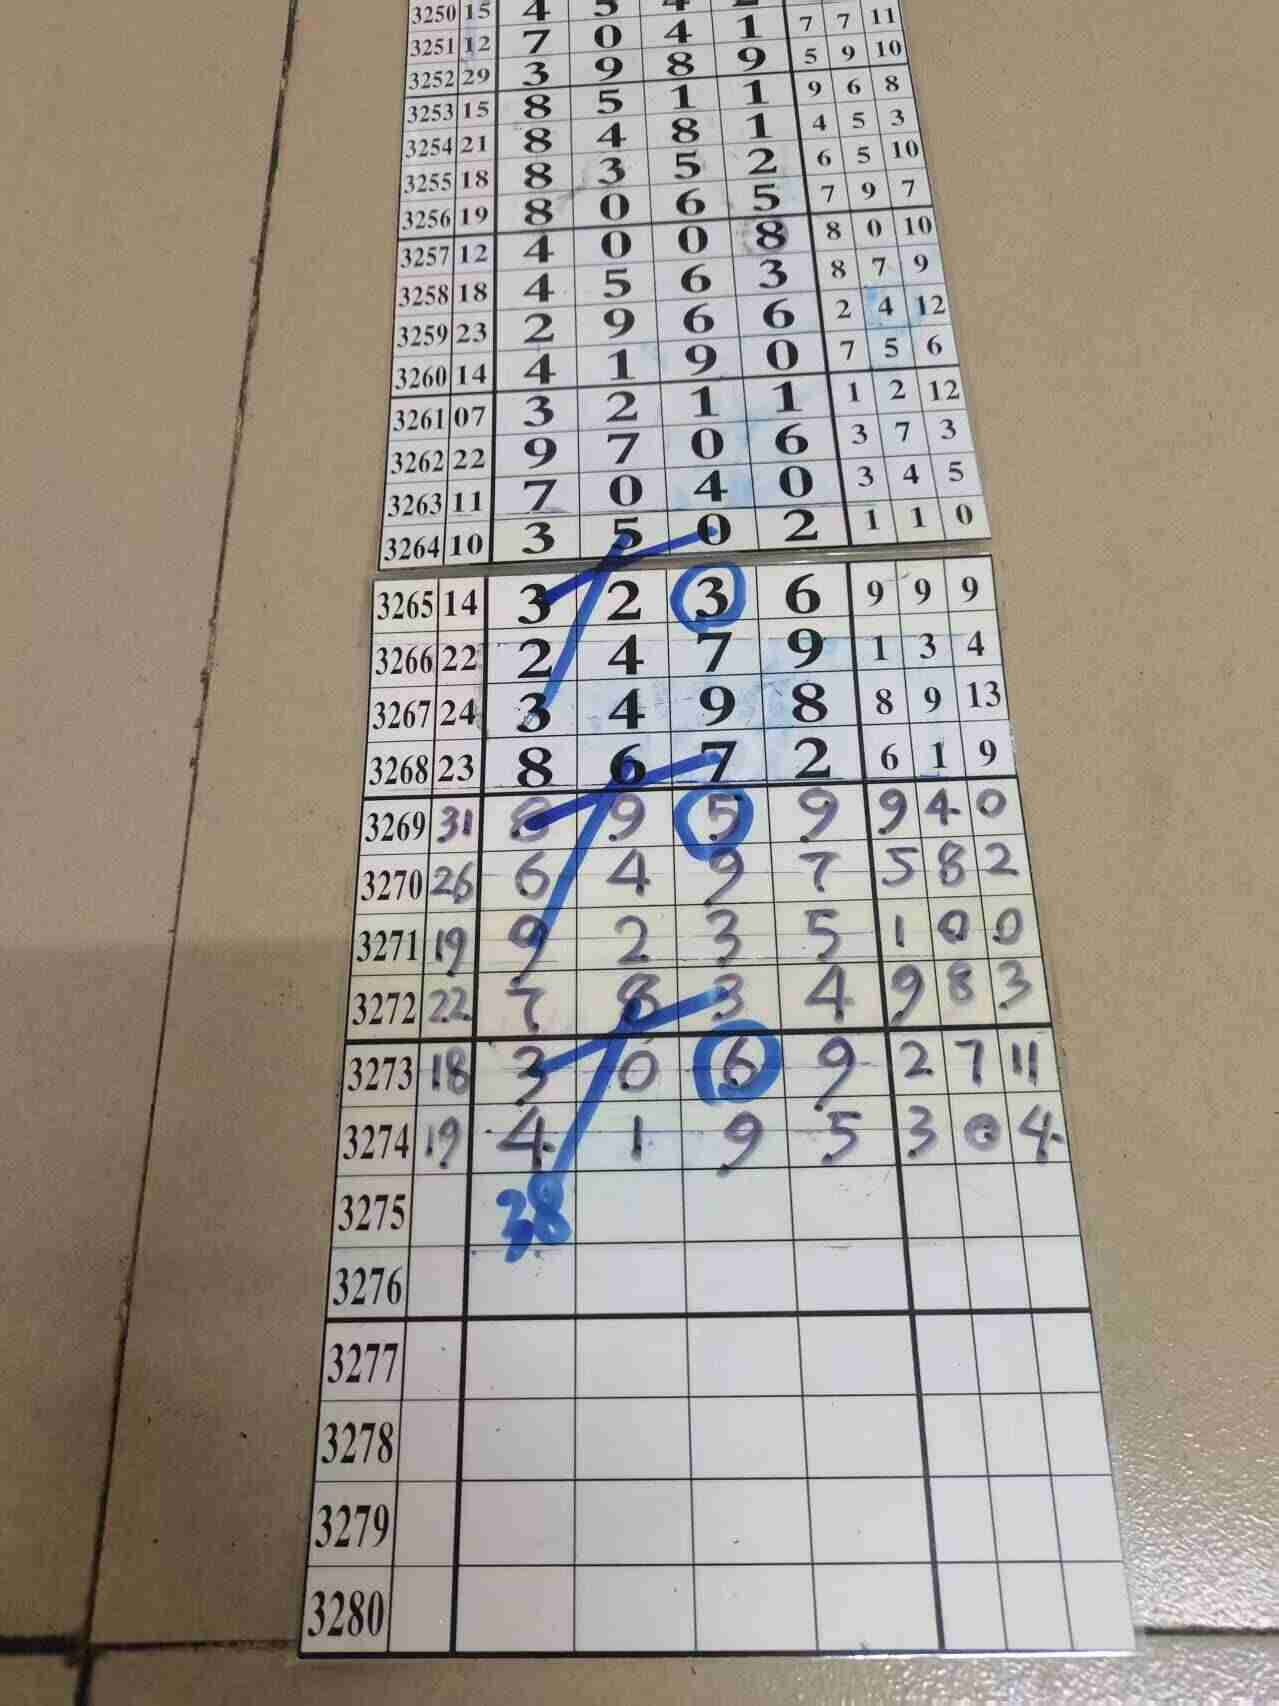 3250 15 4 5 4 7 7 11
3251 12 7 0 4 1 5 9 10
3252 29 3 9 8 9 9 6 8
3253 15 8 5 1 1 4 5 3
3254 21 8 4 8 1 6 5 10
3255 18 8 3 5 2 7 9 7
3256 19 8 0 6 5 8 0 10
3257 12 4 0 0 8 8 7 9
3258 18 4 5 6 3 2 4 12
3259 23 2 9 6 6 7 5 6
3260 14 4 1 9 0 1 2 12
3261 07 3 2 1 1 3 7 3
3262 22 9 7 0 6 3 4 5
3263 11 7 0 4 0 1 1 0
3264 10 3 5 0 2
3265 14 3 2 3 6 9 9 9
3266 22 2 4 7 9 1 3 4
3267 24 3 4 9 8 8 9 13
3268 23 8 6 7 2 6 1 9
3269 31 8 9 5 9 9 4 0
3270 26 6 4 9 7 5 8 2
3271 19 9 2 3 5 1 0 0
3272 22 7 8 3 4 9 8 3
3273 18 3 0 6 9 2 7 11
3274 19 4 1 9 5 3 0 4
3275 38
3276
3277
3278
3279
3280